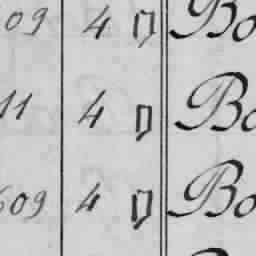 09 4 0 Bo
11 4 0 Bo
609 4 0 Bo